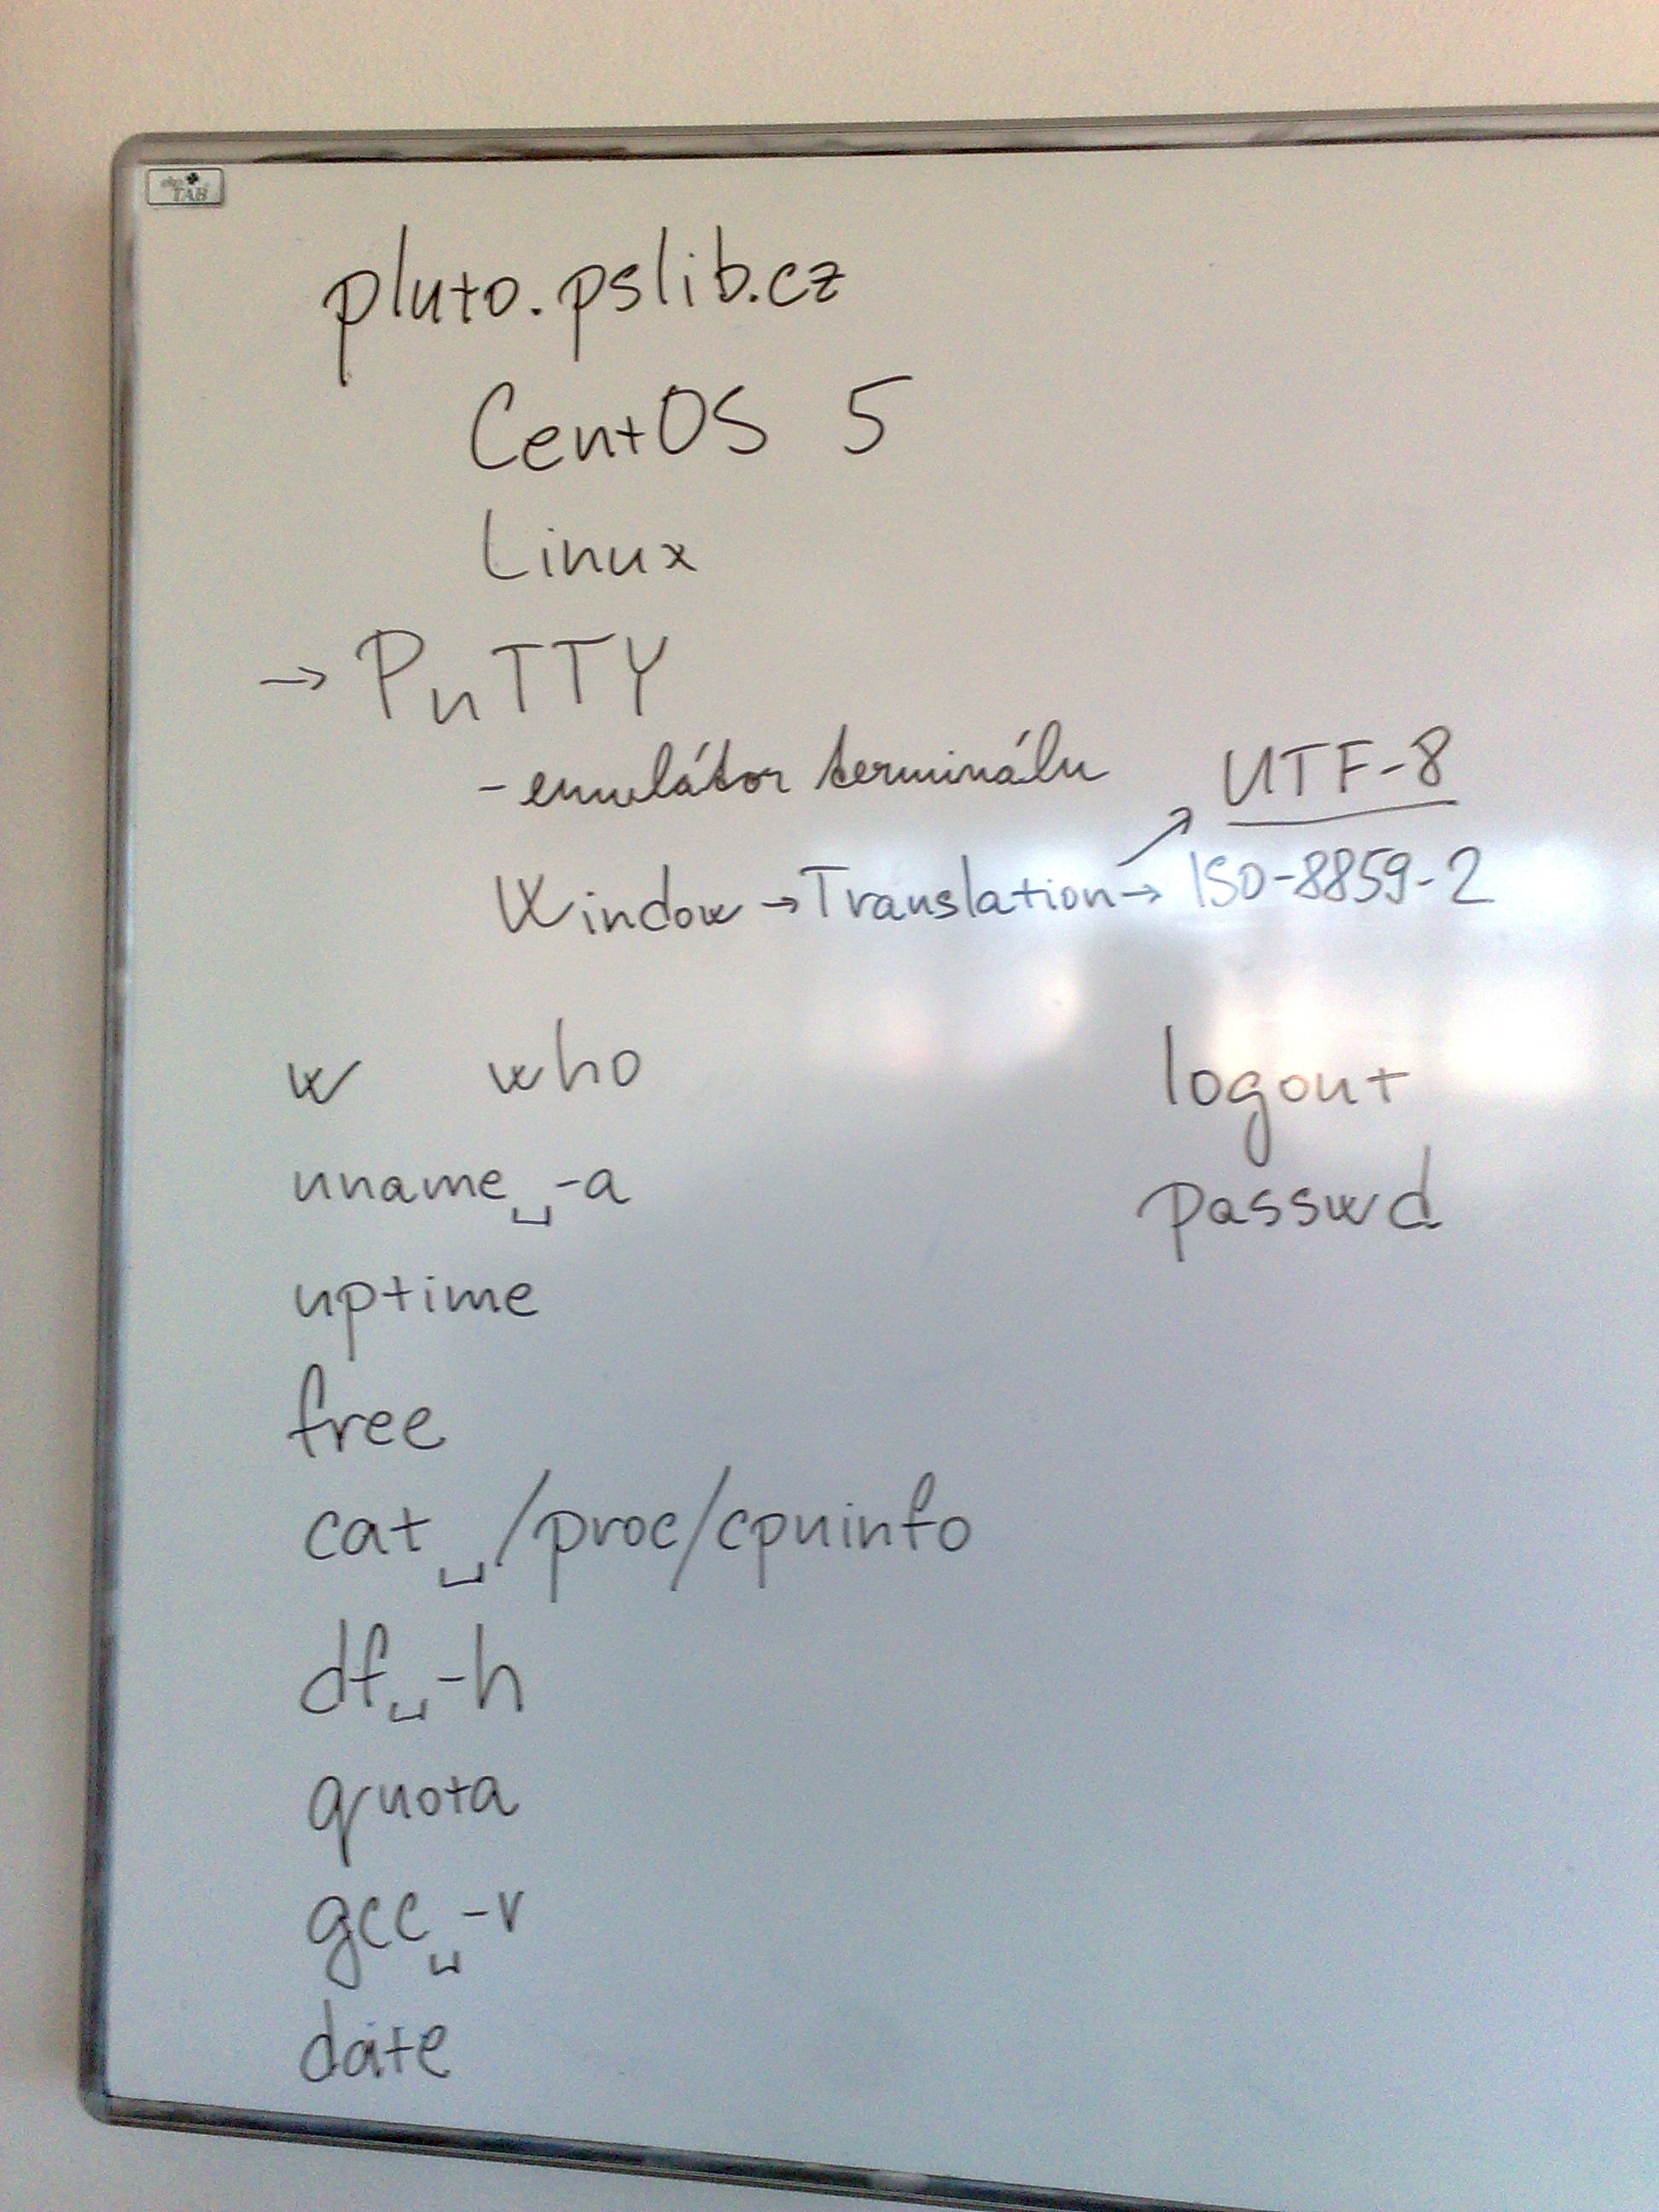 pluto.pslib.cz
CentOS 5
Linux
→ PuTTY
- emulátor terminálu
UTF-8
Window → Translation → ISO-8859-2
w who
logout
uname␣-a
passwd
uptime
free
cat␣/proc/cpuinfo
df␣-h
quota
gcc␣-v
date
TAB